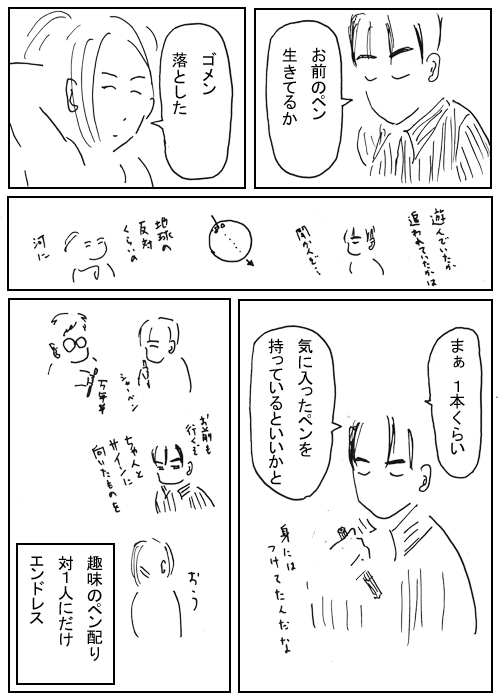 お前のペン
生きてるか
ゴメン
落とした
遊んでいたか
追われていたかは
聞かんぞ…
地球の
反対
くらいの
河に
まぁ 1本くらい
気に入ったペンを
持っているといいかと
身には
つけてたんだな
シャーペン
万年筆
お前も
行くぞ
ちゃんと
サインに
向いたものを
おう
趣味のペン配り
対1人にだけ
エンドレス